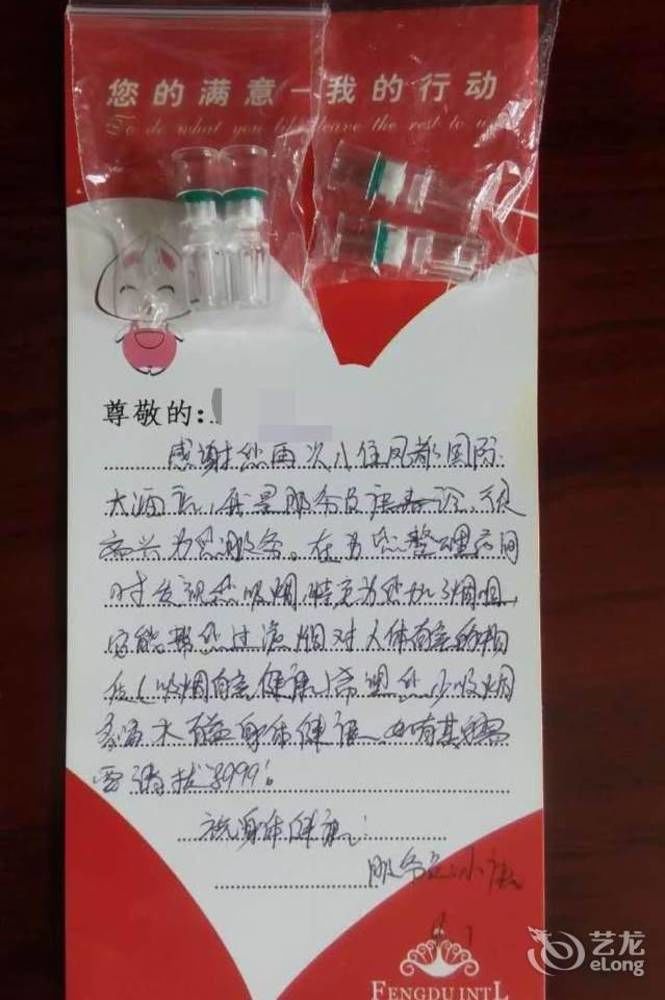 您的满意—我的行动
To do what you like leave the rest to us
尊敬的:
感谢您再次入住凤都国际
大酒店,我是服务员唐春玲,很
高兴为您服务。在为您整理房间
时发现您吸烟,特意为您加了烟咀,
它能帮您过滤烟对人体有害的物
(吸烟有害健康)希望您少吸烟
有益身体健康,如有其它需
要请拨999!
祝身体健康!
服务员:小唐
FENGDU INT'L
艺龙
eLong